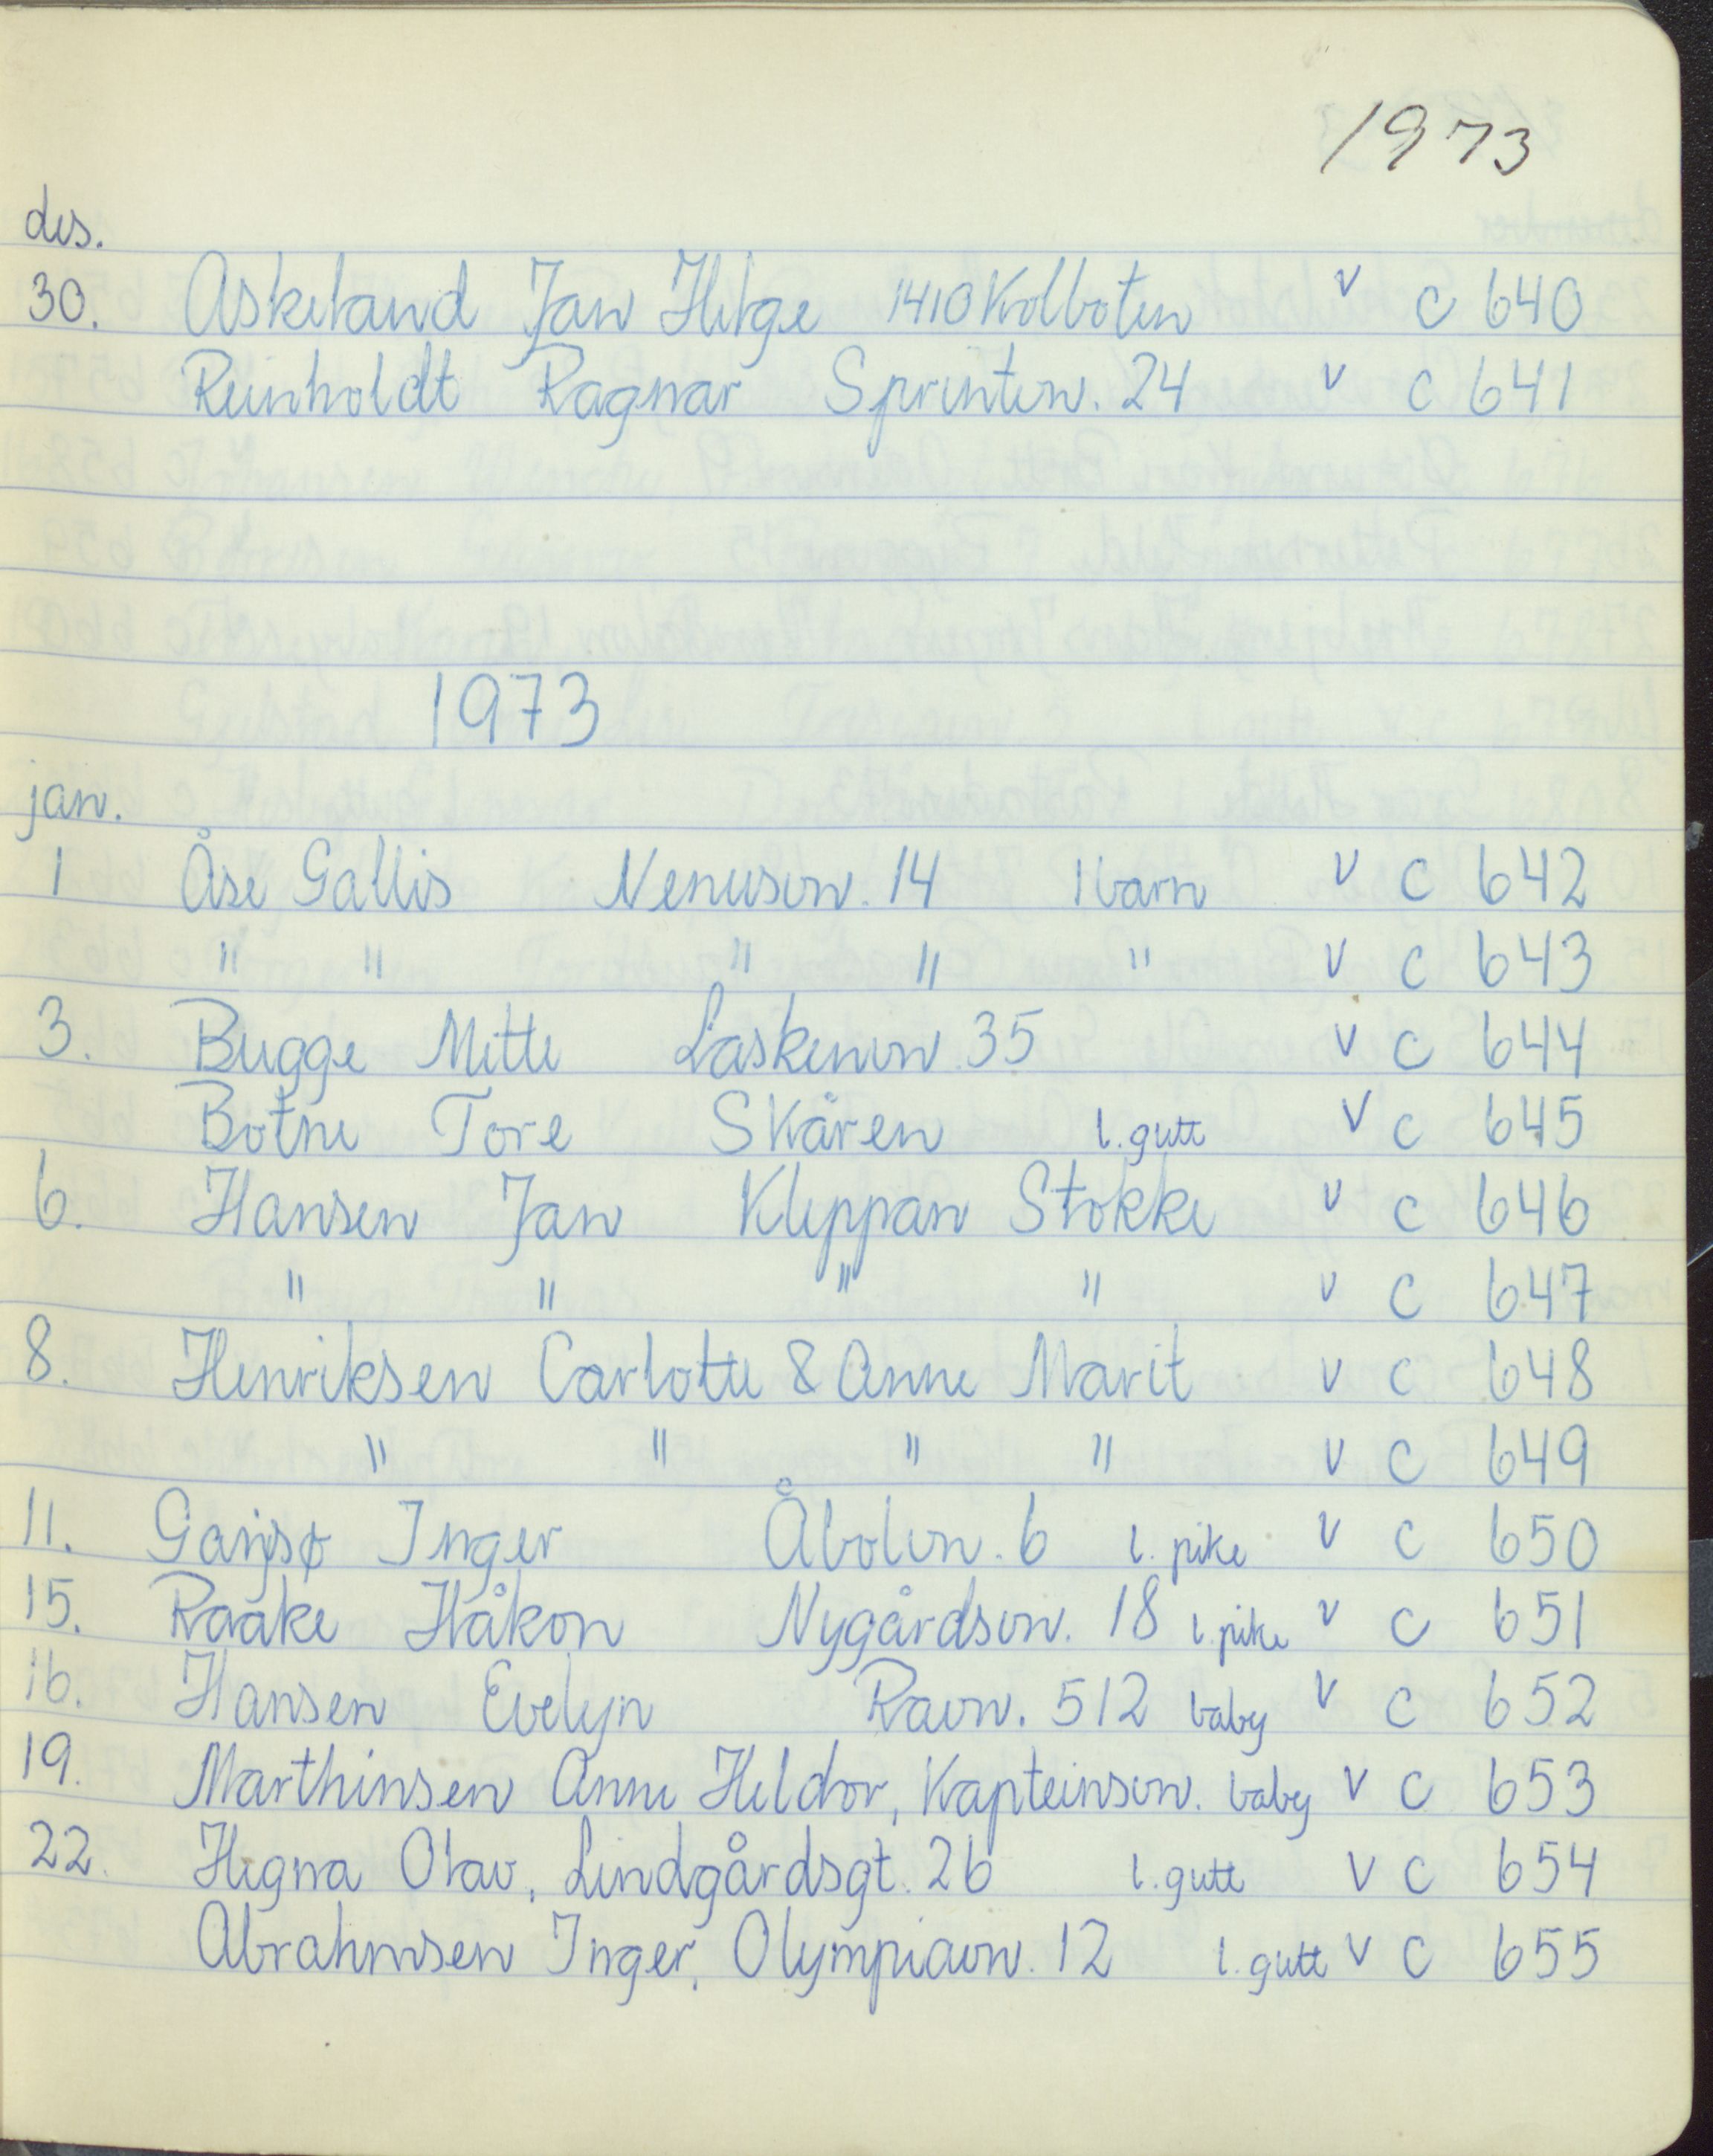 1973
des.
30. Askeland Jan Helge 1410 Kolboten v c 640
Reinholdt Ragnar Sprintvn. 24 v c 641
1973
jan.
1 Åse Gallis Nenusvn. 14 1 barn v c 642
" " " " " v c 643
3. Bugge Mette Laskenvn 35 v c 644
Botne Tore Skåren l. gutt v c 645
6. Hansen Jan Kleppan Stokke v c 646
" " " " v c 647
8. Henriksen Carlotte & Anne Marit v c 648
" " " " v c 649
11. Gansø Inger Åbolvn. 6 l. pike v c 650
15. Raake Håkon Nygårdsvn. 18 l. pike v c 651
16. Hansen Evelyn Ravn. 512 baby v c 652
19. Marthinsen Anne Heldor, Kapteinsvn. baby v c 653
22. Hegna Olav, Lindgårdsgt. 26 l. gutt v c 654
Abrahmsen Inger, Olympiavn. 12 l. gutt v c 655